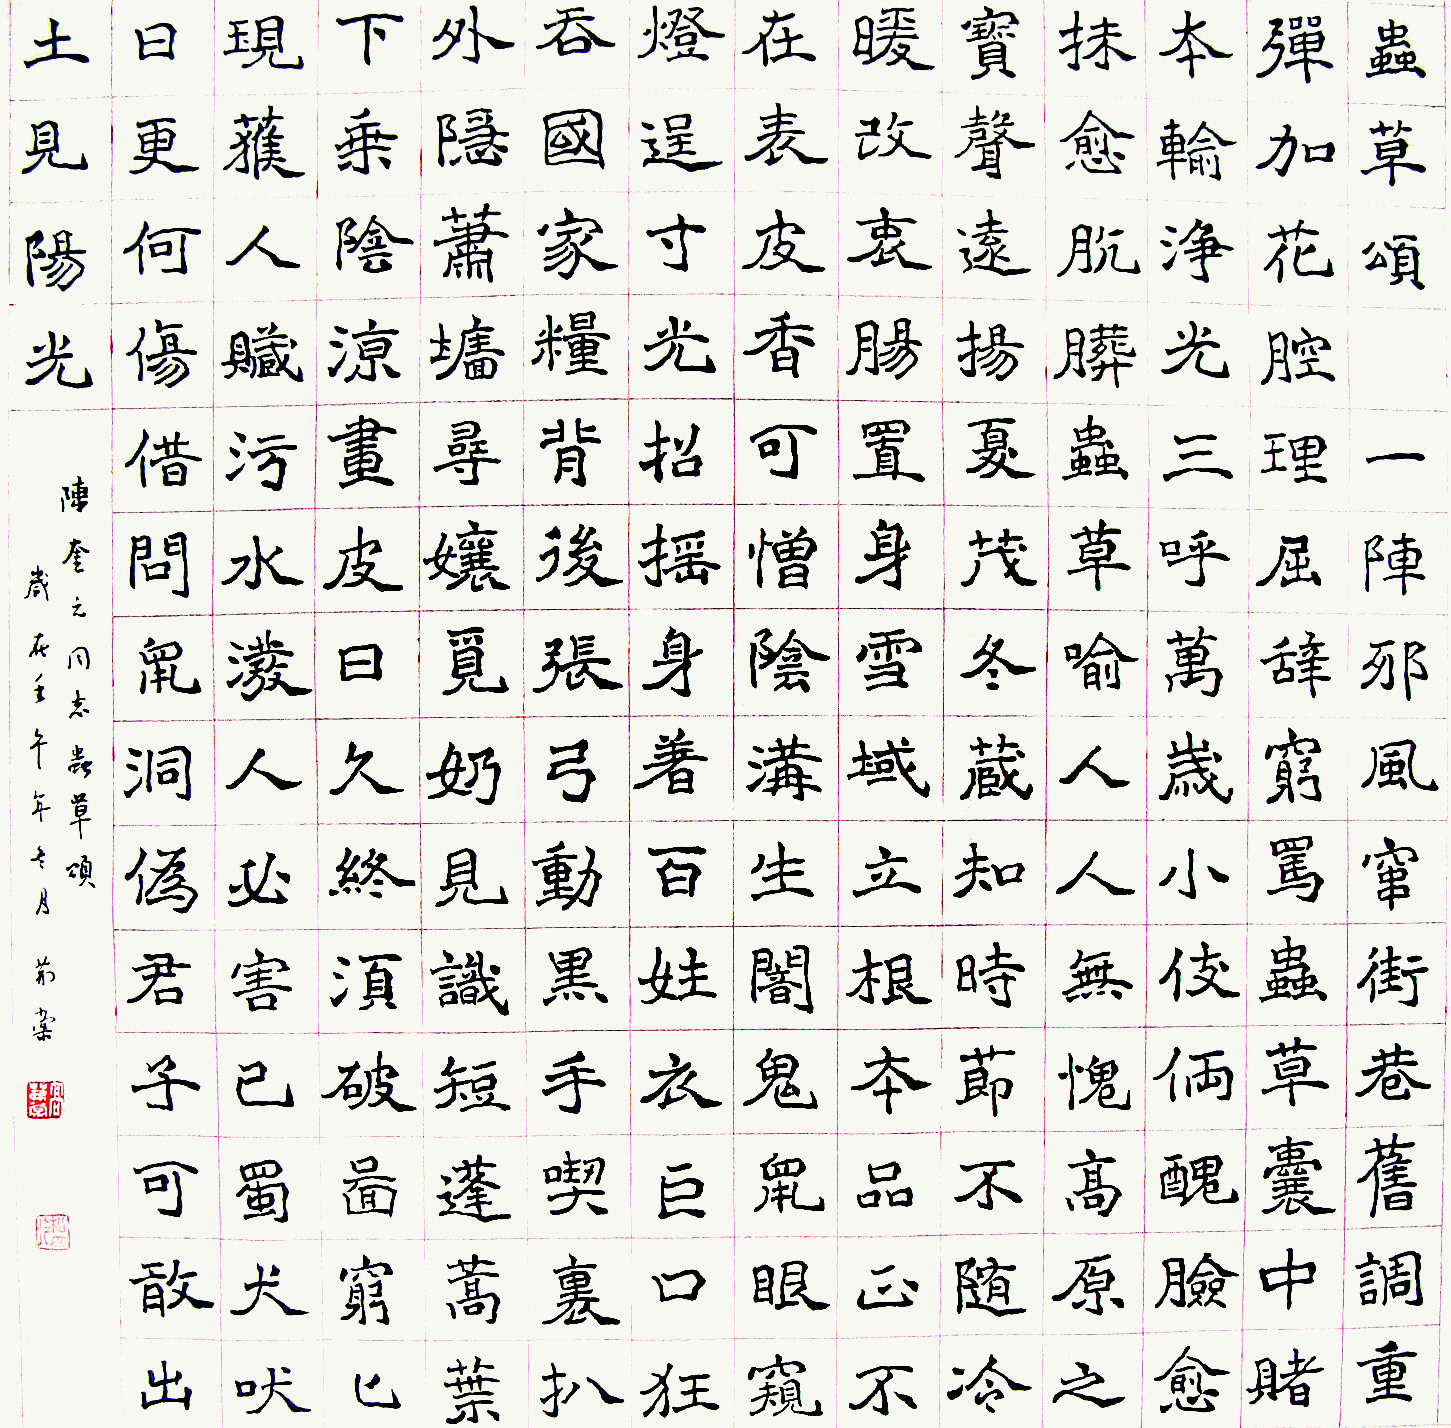 蟲草頌 一陣邪風窜街巷舊調重
彈加花腔理屈辞窮罵蟲草囊中賭
本輸淨光三呼萬歲小伎倆醜臉愈
抹愈肮髒蟲草喻人人無愧高原之
寶聲遠揚夏茂冬藏知時節不随冷
暖改衷腸置身雪域立根本品正不
在表皮香可憎陰溝生闇鬼鼠眼窺
燈逞寸光招摇身著百娃衣巨口狂
吞國家糧背後張弓動黑手喫裏扒
外隱蕭墻尋孃覓奶見識短蓬蒿葉
下乗陰涼畫皮日久終須破啚窮匕
現獲人贓污水潑人必害己蜀犬吠
日更何傷借問鼠洞偽君子可敢出
土見陽光
陳奎元同志蟲草頌
歲在壬午年冬月